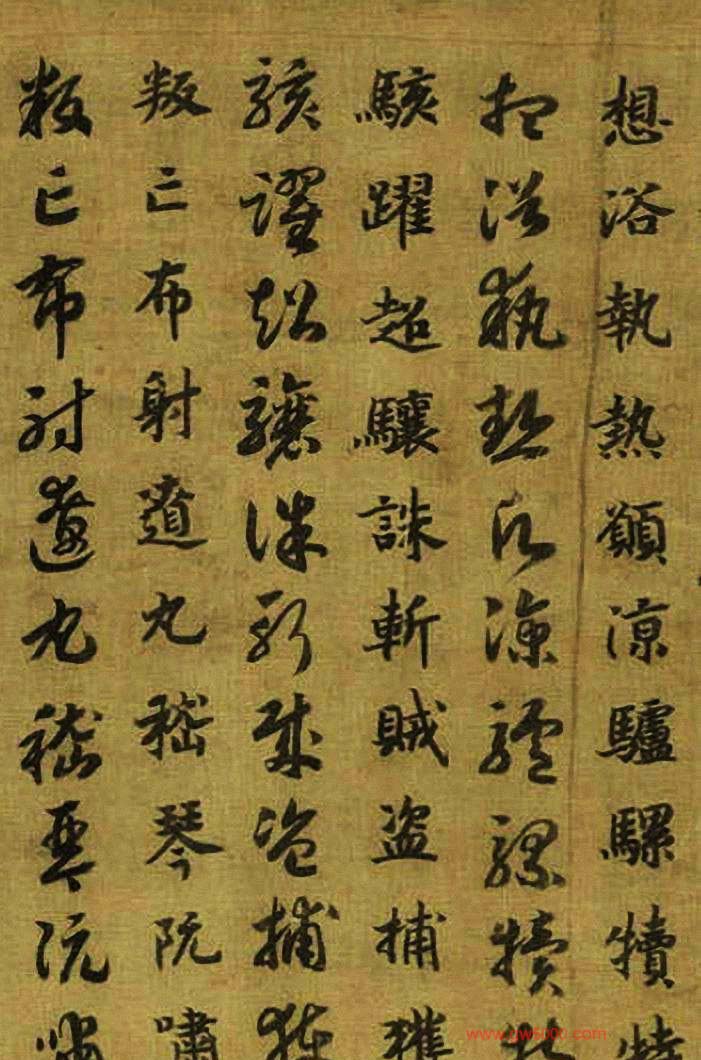 想浴執熱願涼驢騾犢特
想浴執熱願涼驢騾犢特
駭躍超驤誅斬賊盜捕獲
駭躍超驤誅斬賊盜捕獲
叛亡布射遼丸嵇琴阮嘯
叛亡布射遼丸嵇琴阮嘯